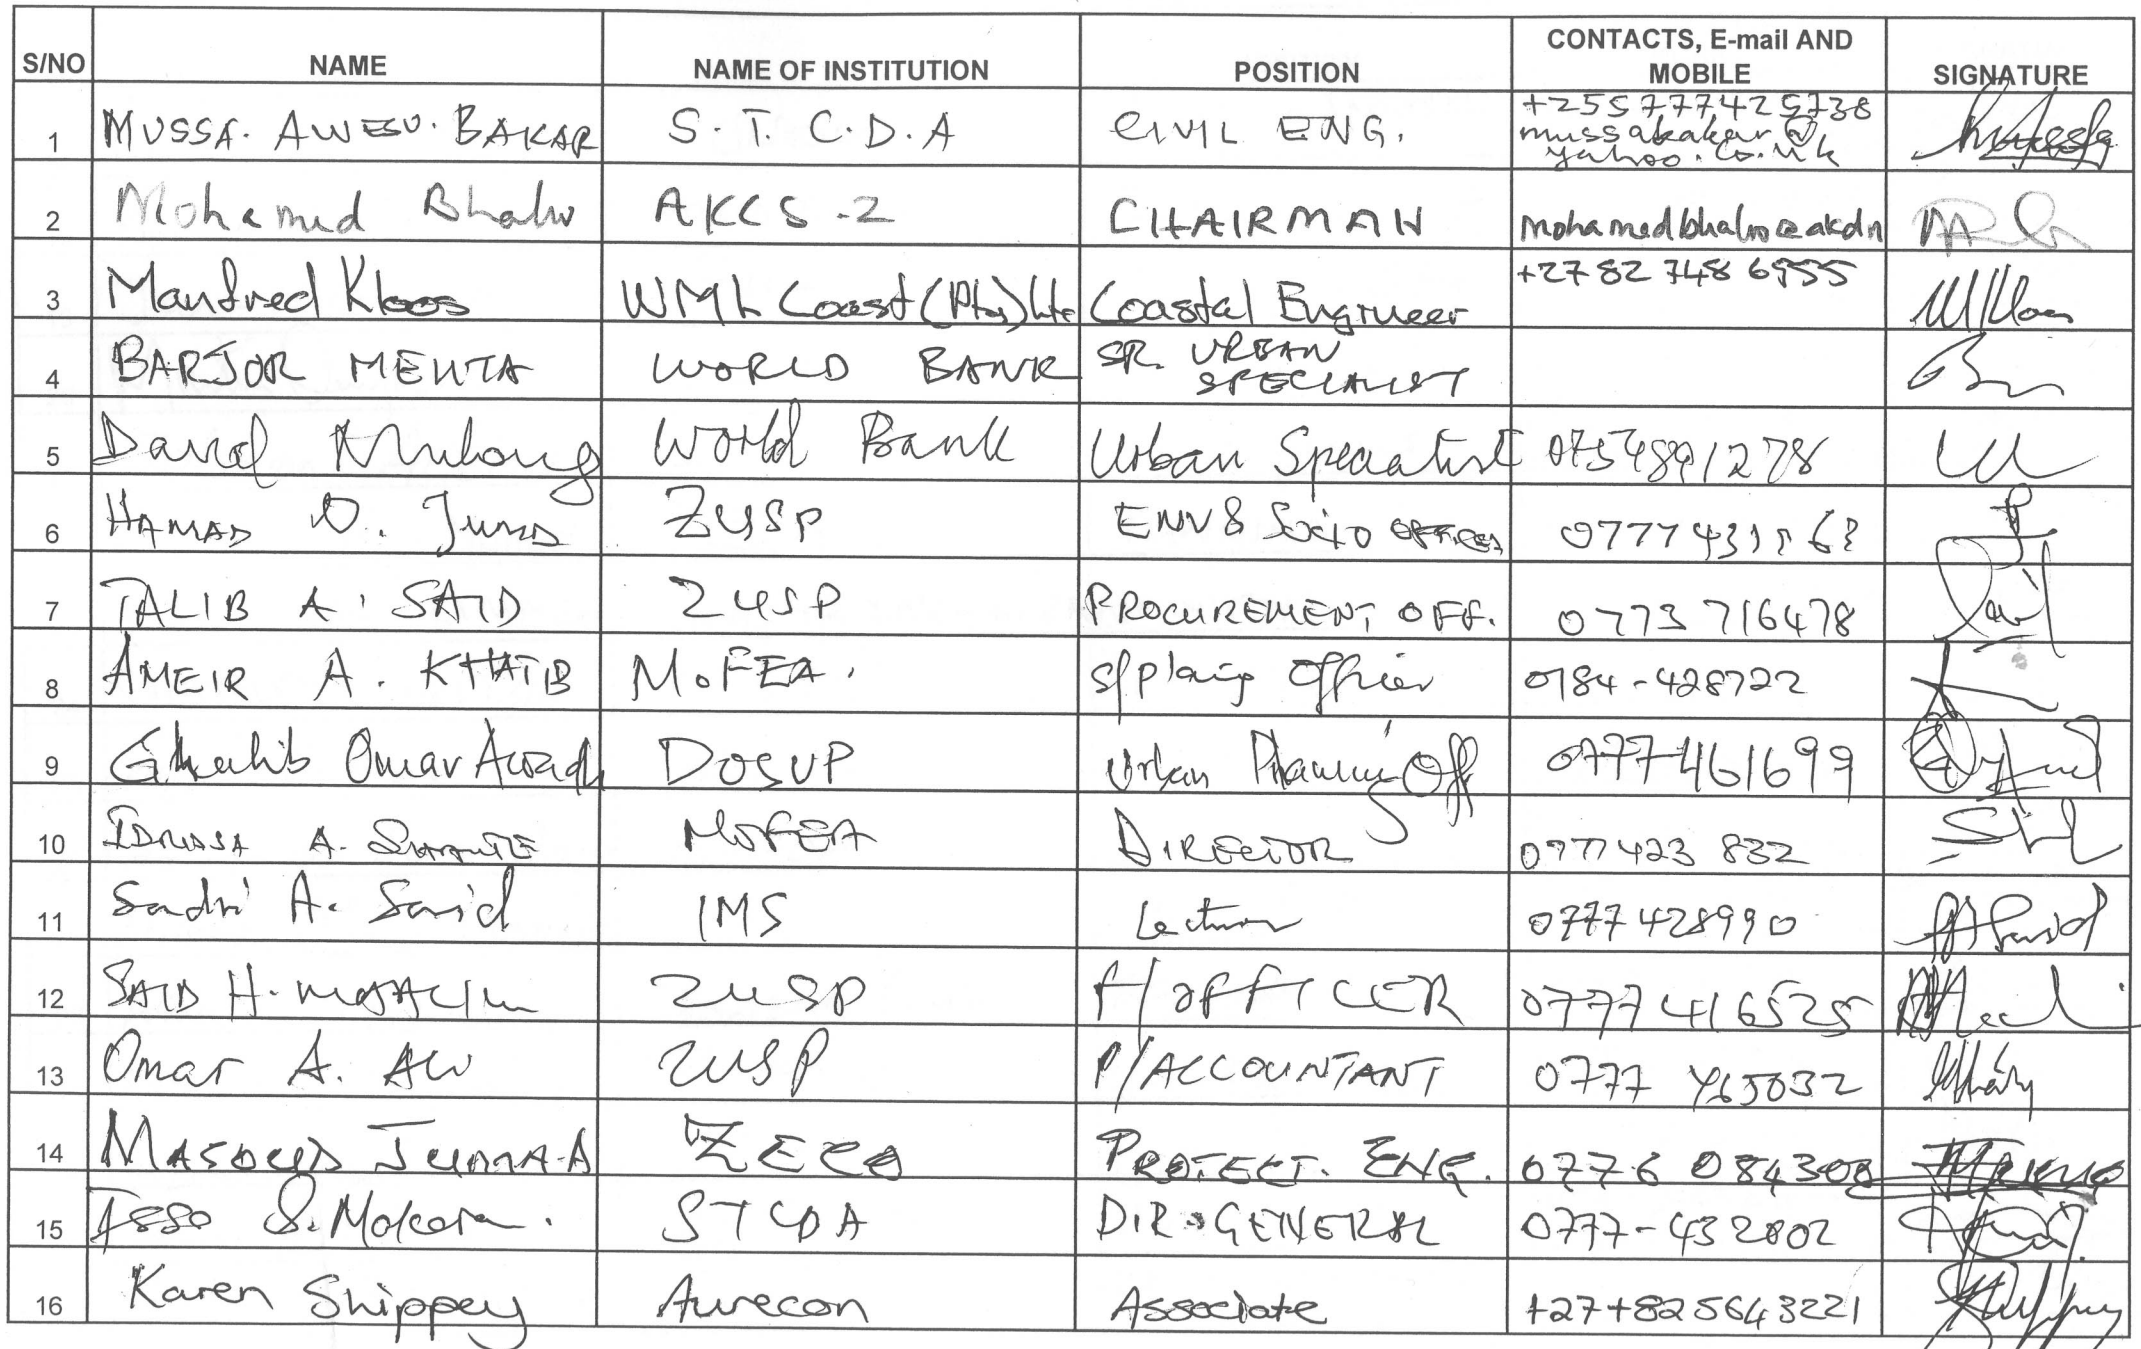 S/NO NAME NAME OF INSTITUTION POSITION CONTACTS, E-mail AND MOBILE SIGNATURE
1 MUSSA. AWESU. BAKAR S.T.C.D.A CIVIL ENG. +255777425738
mussabakar@
yahoo.co.uk
2 Mohamed Bhaloo AKCS-2 CHAIRMAN mohamedbhaloo@akdn
3 Manfred Kloos WML Coast (Pty) Ltd Coastal Engineer +27 82 748 6955
4 BARJOR MEHTA WORLD BANK SR. URBAN
SPECIALIST
5 David World Bank Urban Specialist
6 HAMAD O. Juma ZUSP ENV & Socio OFFICER
7 TALIB A. SAID ZUSP PROCUREMENT OFF. 0773 716478
8 AMEIR A. KHATIB MoFEA. Officer 0784-428722
9 Ghalib Omar Awadh DOSUP Urban Planning Off 0777461699
10 IDRISSA A. MOFEA DIRECTOR 0777 423 832
11 A. Said IMS Lecturer 0777428990
12 SAID H. ZUSP F/OFFICER 0777 416525
13 Omar A. ZUSP P/ACCOUNTANT 0777 465032
14 MASOUD JUMA.A ZECO PROJECT. ENG. 0776 084308
15 S. STCDA DIR. GENERAL 0777-432802
16 Karen Shippey Aurecon Associate +27+825643221